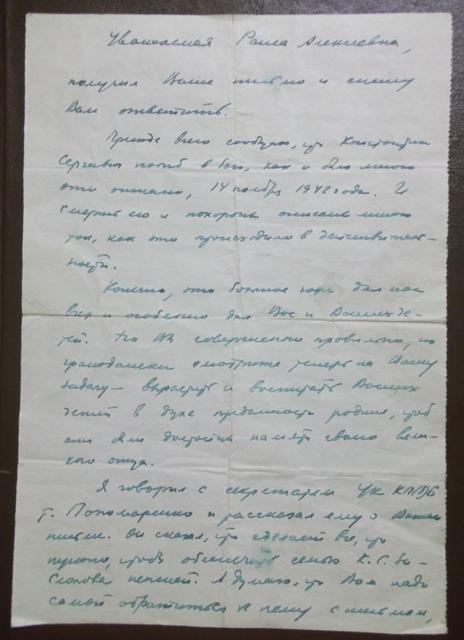 Уважаемая Раиса Алексеевна,
получил Ваше письмо и спешу
Вам ответить.
Прежде всего сообщаю, что Константин
Сергеевич погиб в бою, как и было мною
это описано, 14 ноября 1942 года. И
смерть его и похороны описаны мною
так, как это происходило в действитель-
ности.
Конечно, это большое горе для нас
всех и особенно для Вас и Ваших де-
тей. Но Вы совершенно правильно, по
граждански смотрите теперь на Вашу
задачу - вырастить и воспитать Ваших
детей в духе преданности родине, чтоб
они были достойны памяти своего вели-
кого отца.
Я говорил с секретарем ЦК КП(б)Б
т. Пономаренко и рассказал ему о Вашем
письме. Он сказал, что сделает все, что
нужно, чтобы обеспечить семью К. С. За-
слонова пенсией. Я думаю, что Вам надо
самой обратиться к нему с письмом,